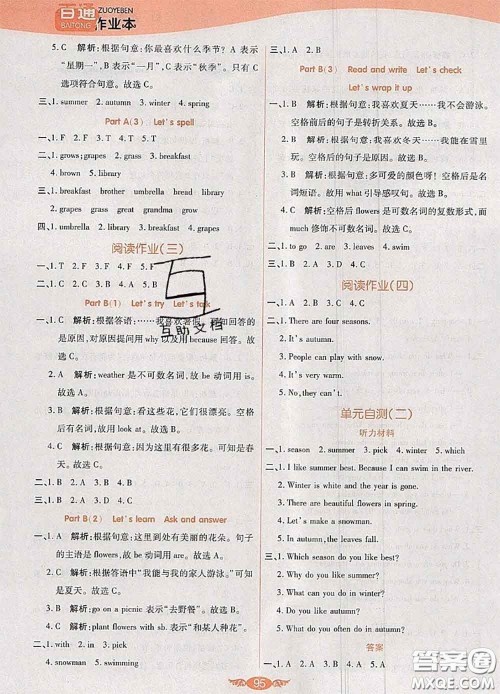 百通
BAITONG
ZUOYEBEN
作业本
5. C 解析:根据句意:你最喜欢什么季节? A 表示
“星期一”, B 表示“一月”, C 表示“秋季”。只有 C
选项符合句意。故选 C。
三、1. summer 2. autumn 3. winter 4. spring
Part A(3) Let's spell
一、1. F 2. F 3. T 4. T 5. T
二、1. grows; grapes 2. grass 3. breakfast
4. brown 5. library
三、1. breakfast brother umbrella bread library
2. grapes grass great grandma grow
四、1. umbrella 2. grass 3. grapes 4. breakfast
阅读作业(三)
一、1. T 2. F 3. F 4. F 5. F
Part B(1) Let's try Let's talk
一、1. C 解析:根据答语:……我喜欢暑假。可知回答的
是原因,对原因提问用 why 以及用 because 回答。故
选 C。
2. A 解析:weather 是不可数名词,故 be 动词用 is。
故选 A。
3. B 解析:根据句意:看这些花,它们很漂亮。空格
后有名词,故用 look at。故选 B。
4. C 解析:根据句意:因为这里有很多花。可知是春
天。故选 C。
二、1. B 2. A 3. D 4. C
Part B(2) Let's learn Ask and answer
一、1. A 解析:根据句意:这里到处有美丽的花朵。句子
的主语是 flowers,故 be 动词用 are。故选 A。
2. C 解析:根据答语中“我能与我的家人游泳。”可知
是夏天。故选 C。
3. B 解析:go on a picnic 表示“去野餐”。故选 B。
4. C 解析:plant flowers with sb. 表示“和某人种花”。
故选 C。
二、1. with 2. in 3. on 4. to 5. at
4. snowman 5. swimming
三、1. A 2. B
Part B(3) Read and write Let's check
Let's wrap it up
一、1. B 解析:根据句意:我喜欢夏天……我不会游泳。
空格前后的句子是转折关系。故选 B。
2. A 解析:根据句意:我喜欢冬天……我能在雪里
玩。空格后的句子是原因。故选 A。
3. B 解析:根据句意:多可爱的颜色啊!空格后是名
词短语。故用 what 引导感叹句。故选 B。
4. C 解析:空格后 flowers 是可数名词的复数形式,而
much 修饰不可数名词。故选 C。
二、1. to go 2. are 3. leaves 4. swim
三、1. A 2. B 3. D 4. C
阅读作业(四)
一、1. B 2. A 3. D 4. C
二、1. There are four seasons.
2. It's autumn.
3. People can play with snow.
4. It's very warm.
5. No, they can't.
单元自测(二)
听力材料
一、1. season 2. summer 3. pick 4. winter 5. which
二、1. I like summer best. Because I can swim in the river.
2. In winter, it always snows.
3. There are beautiful flowers in spring.
4. Let's make a snowman.
5. In autumn, the leaves fall.
三、1. Which season do you like best?
2. Why do you like summer?
3. What can you do in winter?
4. Do you like autumn?
5. What do you often do in autumn?
答案
一、1. A 2. A 3. B 4. A 5. A
互
互助文档
95